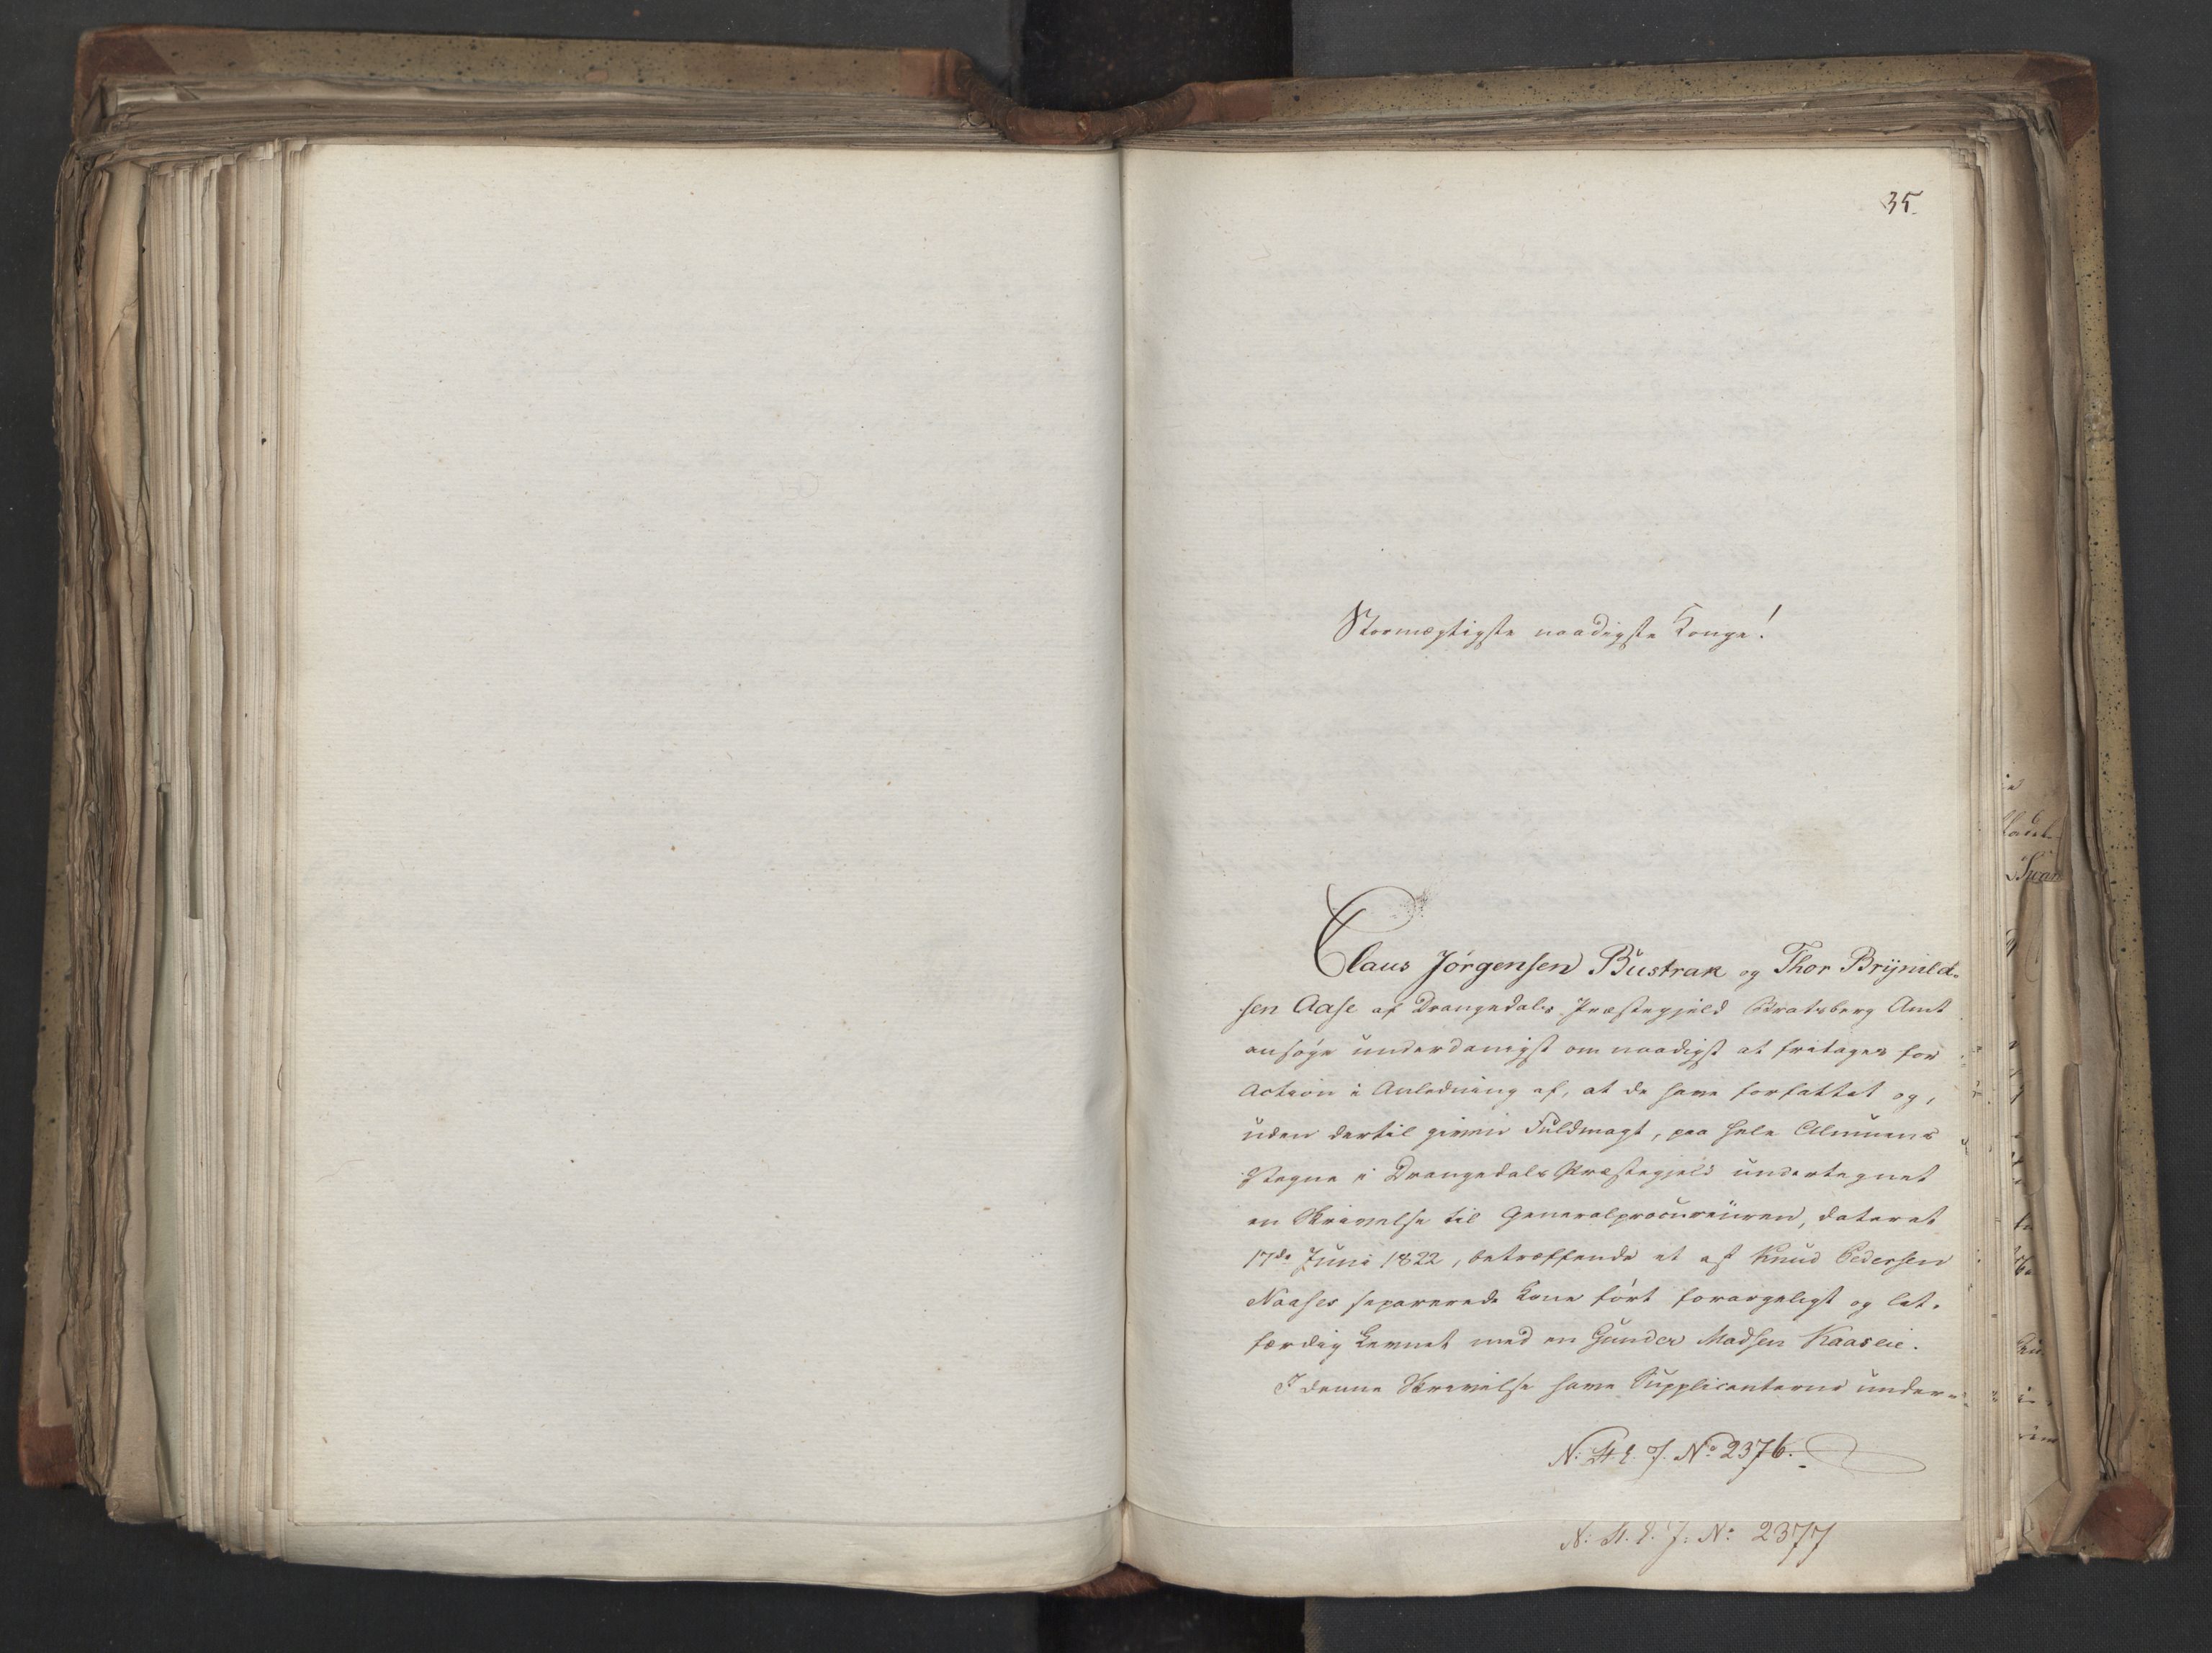 35.
Stormægtigste naadigste Konge!
Claus Jörgensen Bustrak og Thor Brynild-
sen Aase af Drangedals Præstegjeld Bratsberg Amt
ansøge underdanigst om naadigst at fritages for
Action i Anledning af, at de have forfattet og,
uden dertil given Fuldmagt, paa hele Almuens
Vegne i Drangedals Præstegjeld undertegnet
en Skrivelse til Generalprocureuren, dateret
17de Juni 1822, betræffende et af Knud Pedersen
Naases separerede Kone ført forargeligt og let-
færdig Levnet med en Gunder Madsen Kaaseie.
I denne Skrivelse have Supplicanterne under-
N: St. E. J. No 2376.
N: St. E. J: No: 2377